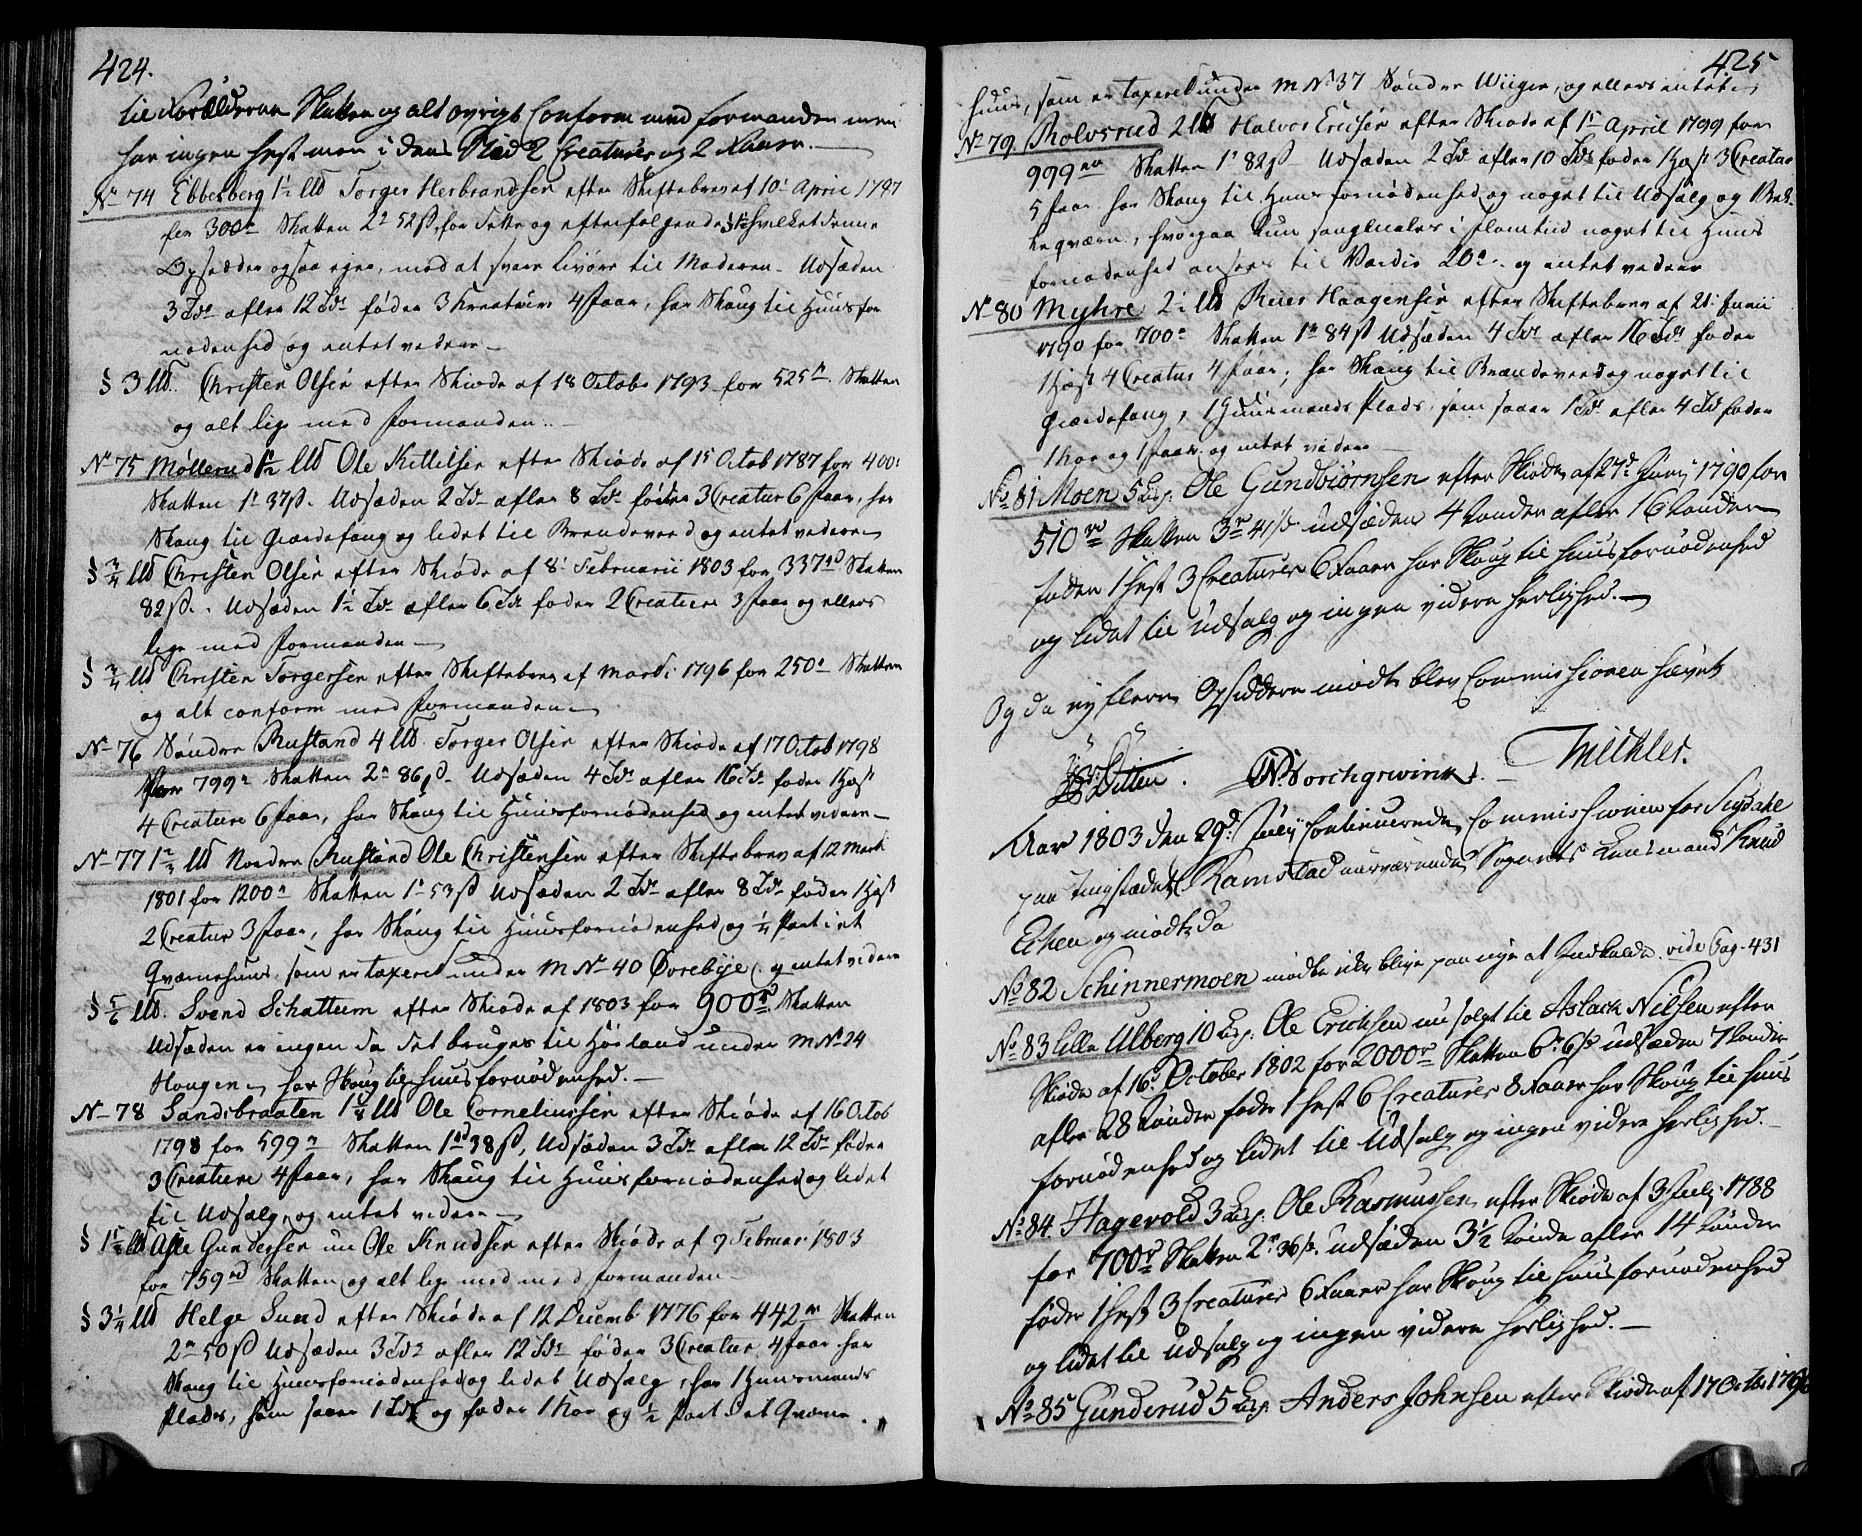 424.
til Forældrene Skatten og alt øvrigt Conform med formanden men
har ingen Hest men i dens Sted 2 Creaturer og 2 Faarer.
No 74 Ebbesberg 1½ Lld Torger Herbrandsen efter Skiftebrev af 10' April 1787
for 300r Skatten 2r 52ß, for dette og efterfølgende § hvilket denne
Opsidder ogsaa eger, mod at svare livøre til Moderen. Udsæden
3 Tdr afler 12 Tdr føder 3 Kreaturer 4 Faar, har Skaug til Huusfor
nødenhed og intet videre
§ 3 Lld. Christen Olsen efter Skiøde af 18 Octobr 1793 for 525r. Skatten
og alt lige med formanden.
No 75 Møllerud 1½ Lld Ole Kittelsen efter Skiøde af 15 Octob 1787 for 400r
Skatten 1r 37ß. Udsæden 2 Tdr afler 8 Tdr føder 3 Creatur 6 Faar, har
Skaug til Giærdefang og lidet til Brendeveed og intet videre
§ ¾ Lld Christen Olsen efter Skiøde af 8' Februarii 1803 for 337rd Skatten
82ß. Udsæden 1½ Td afler 6 Tdr føder 2 Creature 3 Faar og ellers
lige med formanden
§ ¾ Lld Christen Torgersen efter Skiftebrev af Marti 1796 for 250r Skatten
og alt conform med formanden
No 76 Søndre Rustand 4 Lld. Torger Olsen efter Skiøde af 17 Octob 1798
for 799r Skatten 2r 86ß. Udsæden 4 Tdr afler 16 Td føder 1 Hæst
4 Creature 6 Faar, har Skaug til Huusfornødenhed og intet videre
No 77 1½ Lld Nordre Rustand Ole Christensen efter Skiftebrev af 12 Marti
1801 for 1200r Skatten 1r 53ß Udsæden 2 Tdr afler 8 Tdr føder 1 Hæst
2 Creatur 3 Faar, har Skaug til Huusfornødenhed og ¼ Part i et
Qværnehuus, som er taxeret under M No 40 Øvrebye, og intet videre
§ 5/6 Lld. Svend Schattum efter Skiøde af 1803 for 900rd Skatten
Udsæden er ingen da det bruges til Hørland under M No 24
Haugen, har Skoug til huusfornødenhed.
No 78 Sandsbraaten 1¼ Lld Ole Corneliussen efter Skiøde af 16 Octob
1798 for 599r Skatten 1rd 38ß, Udsæden 3 Tdr afler 12 Tdr føder
3 Creature 4 Faar, har Skaug til Huusfornødenhed og lidet
til Udsalg, og intet videre
§ 1¼ Lld Asle Gundersen nu Ole Knudsen efter Skiøde af 9 Februar 1803
for 759rd Skatten og alt lige med med formanden
§ 3¼ Lld Helge Lund efter Skiøde af 12 Decemb 1776 for 442r Skatten
2r 50ß Udsæden 3 Tdr afler 12 Tdr føder 3 Creatur 4 Faar har
Skaug til Huusfornødenhed og lidet Udsalg, har 1 Huusmands
Plads, som saaer 1 Td og føder 1 Koe og ½ Part i et Qværne
425
huus, som er taxeret under M No 37 Søndre Wiiger, og ellers intet
No 79 Rolvsrud 2 Lld Halvor Ericsen efter Skiøde af 1' April 1799 for
999r Skatten 1r 82ß Udsæden 2 Td afler 10 Tdr føder 1 Hæst 3 Creatur
5 Faar har Skaug til Huusfornødenhed og noget til Udsalg og Bek-
keqværn, hvorpaa kun maales i flomtiid noget til Huus
fornødenhed ansees til Værdie 20r og intet videre
No 80 Myhre 2½ Lld Reier Haagensen efter Skiftebrev af 21' Junii
1790 for 700r Skatten 1r 84ß Udsæden 4 Tdr afler 16 Tdr føder
1 Hæst 4 Creatur 4 Faar, har Skaug til Brændeveed og noget til
Giærdefang, 1 Huusmands Plads, som saaer 1 Td afler 4 Td føder
1 Koe og 1 Faar og intet videre
No 81 Moen 5 Lisp. Ole Gundbiørnsen efter Skiøde af 27d Junij 1790 for
510rd Skatten 3r 41ß udsæden 4 Tønder afler 16 Tønder
føder 1 Hest 3 Creaturer 6 Faarer har Skoug til huusfornødenhed
og lidet til udsalg og ingen videre herlighed.
Og da ey flere Opsiddere mødte blev Commissionen hævet
Ditten. N. Borchgrevink. Mechler.
Aar 1803 den 29d July continuerede Commissionen for Sigdahl
paa Tingstædet Ramstad nærværende Sognets Lensmand Knud
Echen og mødte da
No 82 Schinnermoen mødte ikke blive paa nye at Indkalde. vide Pag. 431
No 83 Lille Ulberg 10 Lisp. Ole Erichsen nu solgt til Aslack Nilsen efter
Skiøde af 16d October 1802 for 2000rd Skatten 6r 6ß udsæden 7 Tønder
afler 28 Tønder føder 1 Hest 6 Creaturer 8 Faarer har Skoug til huus
fornødenhed og lidet til Udsalg og ingen videre herlighed.
No 84. Hagevold 3 Lisp. Ole Rasmussen efter Skiøde af 3 July 1788
for 700rd Skatten 2r 36ß. udsæden 3½ Tønde afler 14 Tønder
føder 1 Hest 3 Creaturer 6 Faarer har Skoug til huusfornødenhed
og lidet til udsalg og ingen videre herlighed.
No 85 Gunderud 5 Lisp. Anders Johnsen efter Skiøde af 17 Octobr